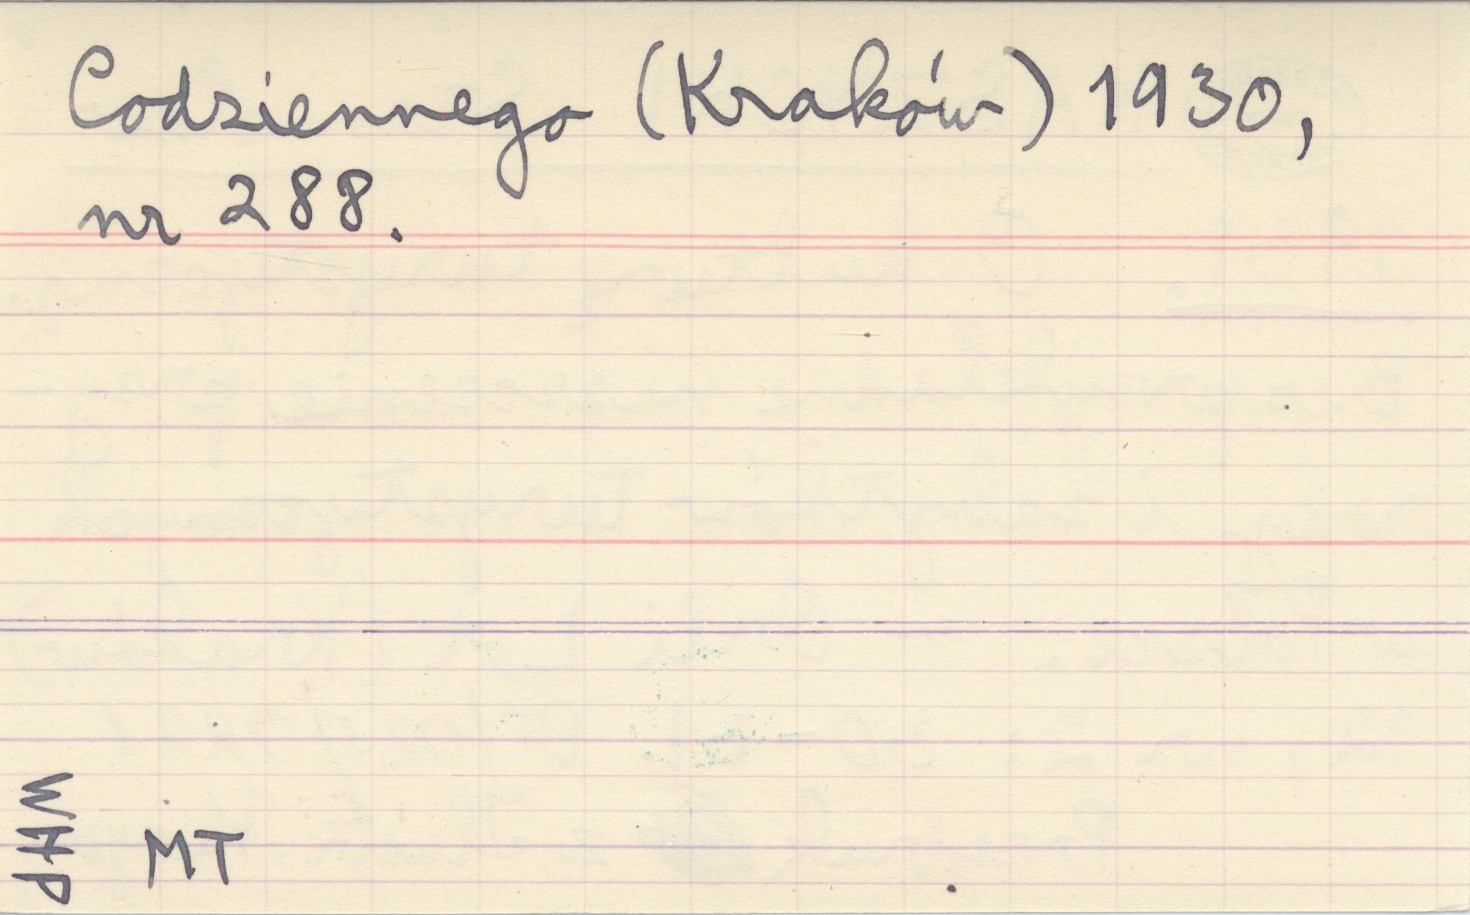 Codziennego (Kraków) 1930,
nr 288.
WHP
MT